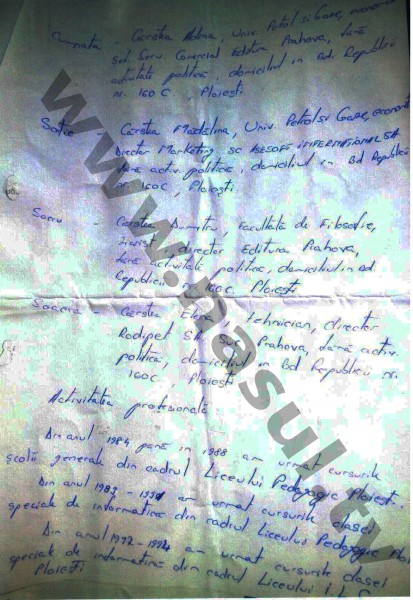 Cumnata - Carstea Adina, Univ. Petrol si Gaze, economist
șef Serv. Comercial Editura Prahova, fără
activitate politică, domiciliul in Bd. Republicii
nr. 160 C. Ploiești
Soție - Carstea Mădălina, Univ. Petrol si Gaze, economist
Director Marketing SC ASESOFT INTERNATIONAL SA
fără activ. politică, domiciliul in Bd Republicii
nr. 160C, Ploiești
Socru - Carstea Dumitru, Facultatea de Filosofie,
ziarist, director Editura Prahova,
fără activitate politică, domiciliul in Bd
Republicii 160C. Ploiești
Soacră - Carstea Elena, tehnician, director
Rodipet SA Suc. Prahova, fără activ.
politică, domiciliul in Bd Republicii nr.
160C Ploiești
Activitatea profesională
Din anul 1984 până in 1988 am urmat cursurile
școlii generale din cadrul Liceului Pedagogic Ploiești.
Din anul - am urmat cursurile clasei
speciale de informatica din cadrul Liceului Pedagogic
Din anul 1992 - 1994 am urmat cursurile clasei
speciale de informatică din cadrul Liceului
Ploiești
www.nasul.tv